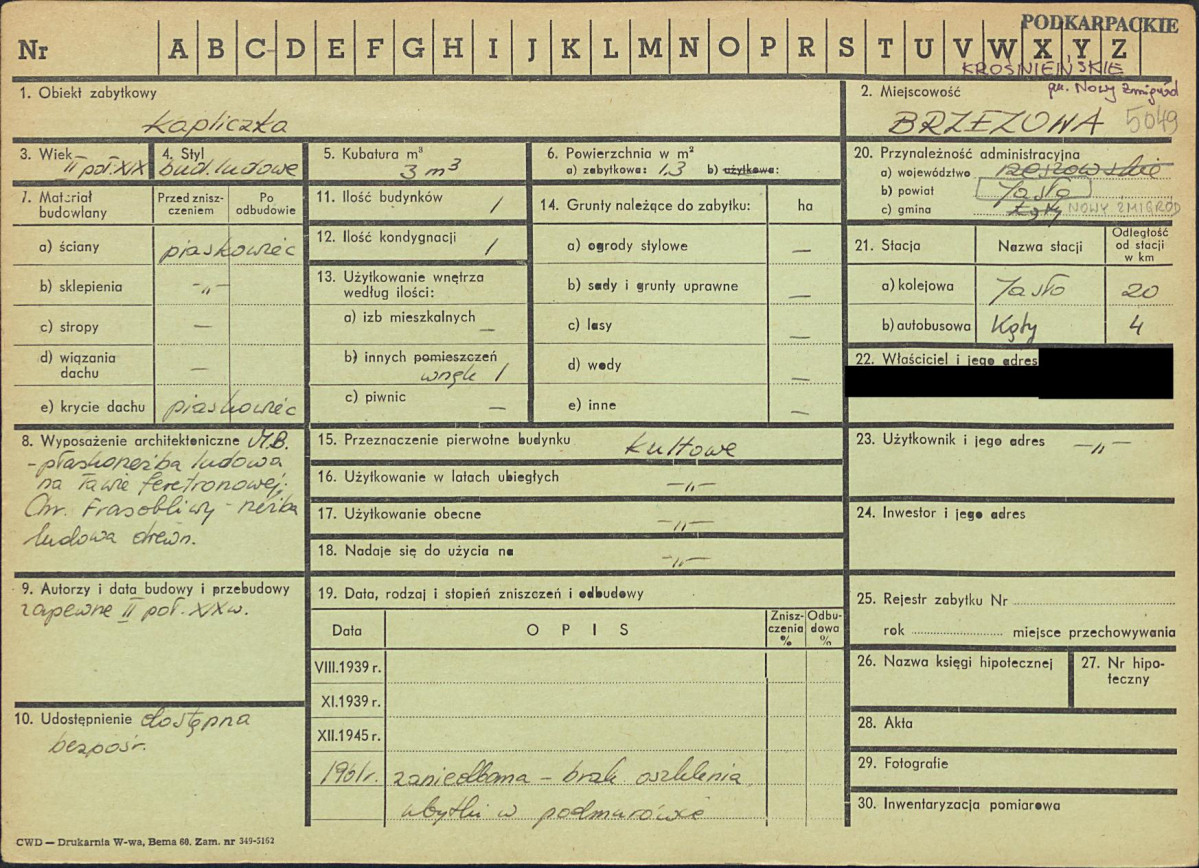 PODKARPACKIE
Nr A B C D E F G H I J K L M N O P R S T U V W X Y Z
KROŚNIEŃSKIE
gm. Nowy Żmigród
1. Obiekt zabytkowy
Kapliczka
2. Miejscowość
BRZEZOWA 5049
3. Wiek
II poł. XIX
4. Styl
bud. ludowe
5. Kubatura m³
3 m³
6. Powierzchnia w m²
a) zabytkowa: 1.3 b) użytkowa:
7. Materiał budowlany
Przed zniszczeniem
Po odbudowie
a) ściany piaskowiec
b) sklepienia -„-
c) stropy —
d) wiązania dachu —
e) krycie dachu piaskowiec
8. Wyposażenie architektoniczne M.B.
- płaskorzeźba ludowa
na ławie feretronowej;
Chr. Frasobliwy - rzeźba
ludowa drewn.
9. Autorzy i data budowy i przebudowy
zapewne II poł. XIX w.
10. Udostępnienie dostępna
bezpośr.
11. Ilość budynków 1
12. Ilość kondygnacji 1
13. Użytkowanie wnętrza
według ilości:
a) izb mieszkalnych —
b) innych pomieszczeń
wnęk 1
c) piwnic —
14. Grunty należące do zabytku: ha
a) ogrody stylowe —
b) sady i grunty uprawne —
c) lasy —
d) wody —
e) inne —
15. Przeznaczenie pierwotne budynku kultowe
16. Użytkowanie w latach ubiegłych -„-
17. Użytkowanie obecne -„-
18. Nadaje się do użycia na -„-
19. Data, rodzaj i stopień zniszczeń i odbudowy
Data
OPIS
Zniszczenia %
Odbudowa %
VIII.1939 r.
XI.1939 r.
XII.1945 r.
1961r. zaniedbana - brak oszklenia,
ubytki w podmurówce
20. Przynależność administracyjna
a) województwo rzeszowskie
b) powiat Jasło
c) gmina Kąty NOWY ŻMIGRÓD
21. Stacja
Nazwa stacji
Odległość od stacji w km
a) kolejowa Jasło 20
b) autobusowa Kąty 4
22. Właściciel i jego adres
23. Użytkownik i jego adres -„-
24. Inwestor i jego adres
25. Rejestr zabytku Nr
rok miejsce przechowywania
26. Nazwa księgi hipotecznej
27. Nr hipoteczny
28. Akta
29. Fotografie
30. Inwentaryzacja pomiarowa
CWD — Drukarnia W-wa, Bema 60. Zam. nr 349-5162